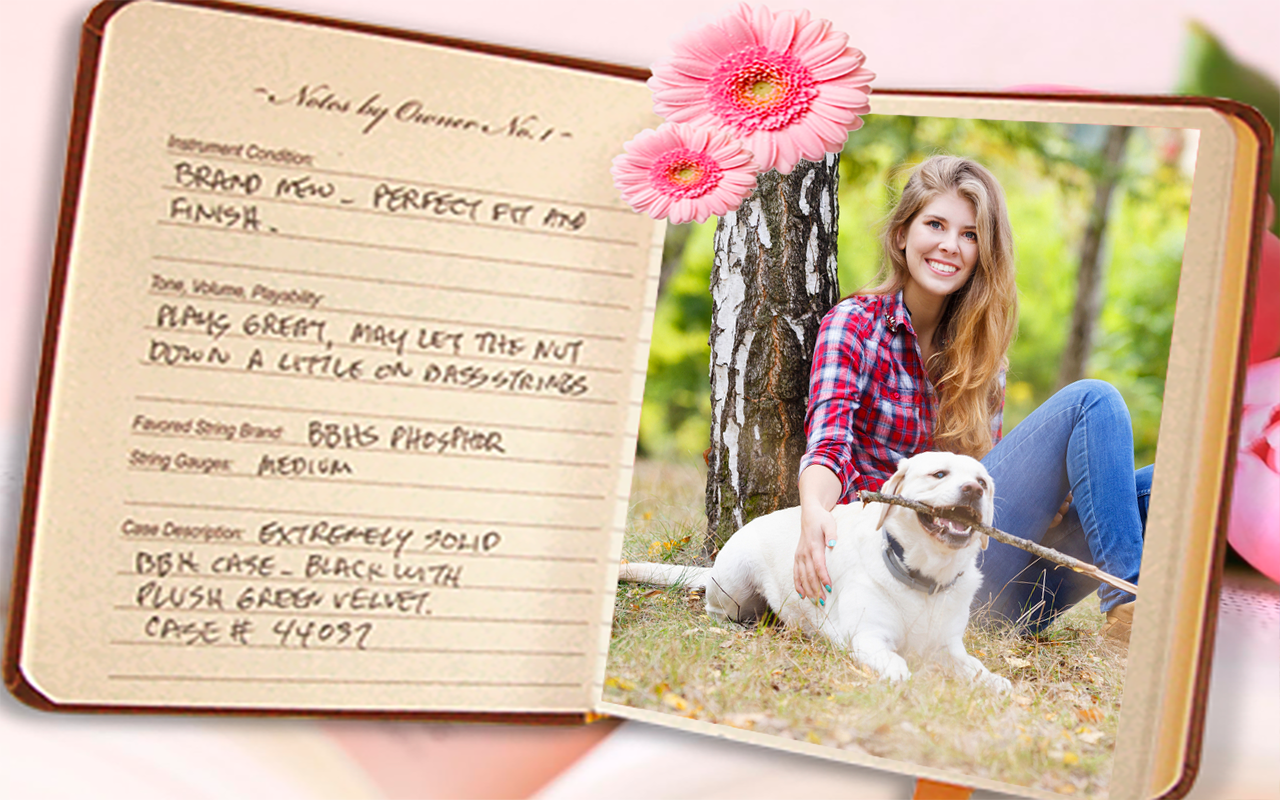 ~Notes by Owner No. 1~
Instrument Condition:
BRAND NEW - PERFECT FIT AND
FINISH.
Tone, Volume, Playability
PLAYS GREAT, MAY LET THE NUT
DOWN A LITTLE ON BASS STRINGS
Favored String Brand: BBHS PHOSPHOR
String Gauges: MEDIUM
Case Description: EXTREMELY SOLID
BBH CASE - BLACK WITH
PLUSH GREEN VELVET.
CASE # 44037